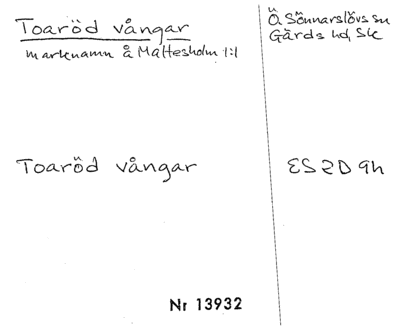 Toaröd vångar
marknamn å Maltesholm 1:1
Ö Sönnarslövs sn
Gärds hd, Sk
Toaröd vångar
ES 2D 9h
Nr 13932